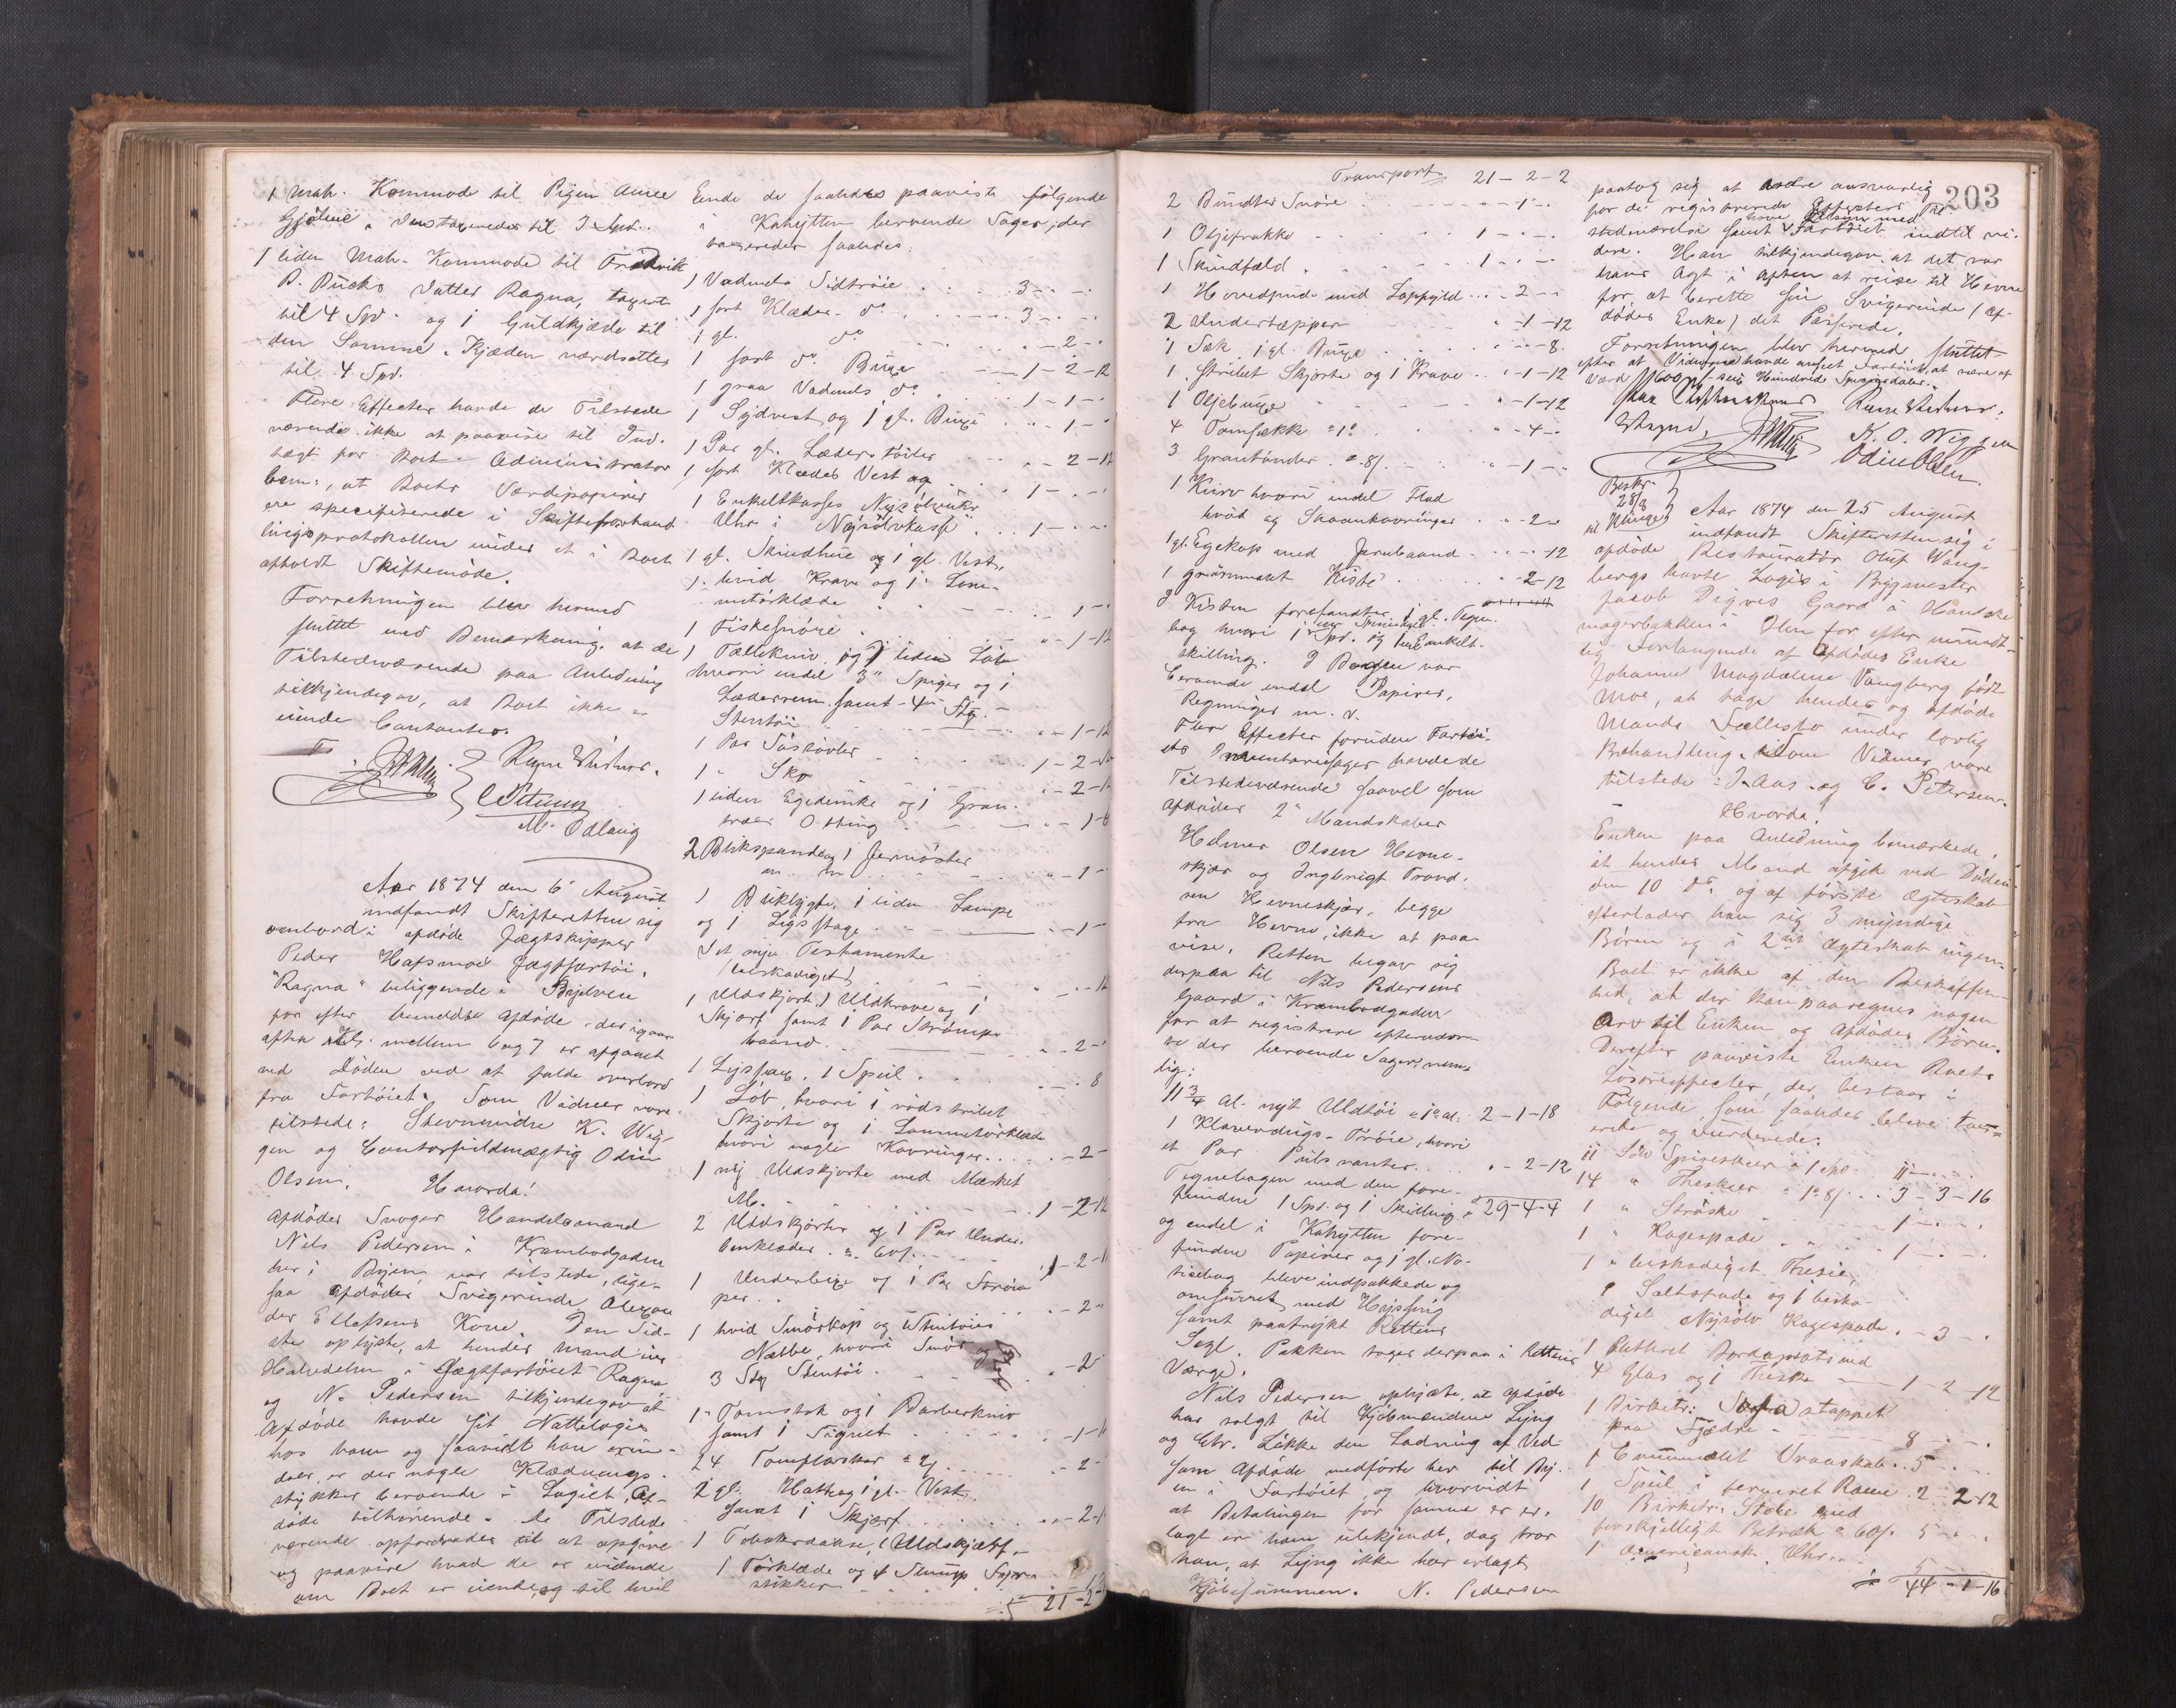 1 Mah. Kommode til Pigen Anne
til 3 Spd.
1 liden Mah. Kommode til Fredrik
B. Bucks Datter Ragna, taxeret
til 4 Spd. og 1 Guldkjæde til
den Samme. Kjæden værdsattes
til 4 Spd.
Flere Effecter havde de Tilstede
værende ikke at paavise til Ind-
tægt for Boet. Administrator
bem:, at Boets Værdipapirer
ere specificerede i Skifteforhand
lingsprotokollen under et i Boet
afholdt Skiftemöde.
Forretningen blev hermed
sluttet med Bemærkning at de
Tilstedeværende paa Anledning
tilkjendegav, at Boet ikke er
eiende Contanter.
Aar 1874 den 6 August
indfandt Skifteretten sig
ombord i afdöde Jægtskipper
Peder Hafsmoes Jægtfartöi,
"Ragna" beliggende i
for efter bemeldte Afdöde, der igaar
aften Kl. mellem 6 og 7 er afgaaet
ved Döden ved at falde overbord
fra Fartöiet. Som Vidner vare
tilstede: Stevnevidne K. Wig-
gen og Contorfuldmægtig Odin
Olsen. Hvorda!
Afdödes Svoger Handelsmand
Nils Pedersen i Krambodgaden
her i Byen var tilstede, lige-
saa Afdödes Svigerinde,
der Ellefsens Kone. Den Sid-
ste oplyste, at hendes Mand eier
Halvdelen i Jægtfartöiet Ragna
og N. Pedersen tilkjendegav at
Afdöde havde sit Nattelogis
hos ham og saavidt han erin-
drer, er der nogle Klædnings-
stykker beroende i Logiet, Af-
döde tilhörende. De Tilstede
værende opfordredes til at opgive
og paavise hvad de er vidende
om Boet er eiende, og til hvil
Ende de saaledes paaviste følgende
i Kahytten beroende Sager, der
taxeredes saaledes:
1 Vadmels Sidtröie 3 - -
1 sort Klædes do 3 - -
1 gl. do - 2 -
1 sort do Buxe 1 - 2 - 12
1 graa Vadmels do 1 - 1 -
1 Sydvest og 1 gl. Buxe - 1 -
1 Par gl. Læderstövler - 2 - 12
1 sort Klædes Vest og
1 Enkeltkasses Nysölv
Uhr i Nysölvkasse 1 - -
1 gl. Skindhue og 1 gl. Vest
1 hvid Krave og 1 Lom-
metörklæde - 1 -
1 Fiskesnöre - 1 - 12
1 Tællekniv og 1 liden Löb
hvori endel 3" Spiger og 1
Læderrem samt 4 Stk.
Stentöi - 1 - 12
1 Par Söstövler 1 - 2 -
1 " Sko - 2 -
1 liden Egedunke og 1 Gran-
træs Otting
2 Blikspande og 1 Jernöster
m. m. - 1 -
1 Bliklygte, 1 liden Lampe
og 1 Lysestage - 1 -
Det nye Testamente
(beskadiget) - - 12
1 Uldskjorte, 1 Uldkrave og 1
Skjærf samt 1 Par Strömpe-
baand - 2 -
1 Lysesax, 1 Speil - - 8
1 Löb, hvori 1 rödstribet
Skjorte og 1 Lommetörklæde
hvori nogle Kavringer - 2 -
1 ny Uldskjorte med Mærket
M. 1 - 2 - 12
2 Uldskjorter og 1 Par Under-
benklæder à 60 s. 1 - 2 -
1 Underbuxe og 1 Par Ström
per - 2 -
1 hvid Smörkop og Stentöies
hvori Smör og
3 Stk Stentöi - 2
1 Tomstok og 1 Barberkniv
samt 1 Signet - 1 -
24 Tomflasker à 2 s. - 2 -
2 gl. Hatte og 1 gl. Vest
samt 1 Skjærf - 2 -
1 Tobaksdaase, 1 Uldskjærf
1 Törklæde og 4 Stump
stikker
21 - 2
Transport 21 - 2 - 2
203
2 Bundter Snöre - 1 -
1 Oljefrakke 1 - -
1 Skindfæld 1 - -
1 Hovedpude med Lappyld - 2 -
2 Undertæpper - 1 - 12
1 Sæk, 1 gl. Buxe - - 8
1 stribet Skjorte og 1 Krave - 1 - 12
1 Oljebuxe - 1 - 12
4 Tomsække à 1 - 4 -
3 Grantönder à 8 s. - 1 -
1 Kurv hvori endel Flad
bröd og Skaankavringer - 2 -
1 gl. Egekop med Jernbaand - - 12
1 grönmalet Kiste - 2 - 12
I Kisten forefandtes 1 gl. Tegne-
bog hvori 1 Spd. og 1 Enkelt-
skilling. I Bogen var
beroende endel Papirer,
Regninger m. v.
Flere Effecter foruden Fartöi-
ets Inventariesager havde de
Tilstedeværende saavel som
Afdödes 2 Mandskaber
Helmer Olsen Hevne-
skjær og Ingbrigt Trond-
sen Hevneskjær, begge
fra Hevne, ikke at paa-
vise. Retten begav sig
derpaa til Nils Pedersens
Gaard i Krambodgaden
for at registrere efternævn
te der beroende Sager, nem-
lig:
11 3/4 Al. nyt Uldtöi à 1 al. 2 - 1 - 18
1 Klævendugs-Tröie, hvori
et Par Pulsvanter - 2 - 12
29 - 4 - 4
Tegnebogen med den fore-
fundne 1 Spd. og 1 Skilling
og endel i Kahytten fore-
fundne Papirer og 1 gl. No-
ticebog bleve indpakkede og
omsurret med Hyssing
samt paatrykt Rettens
Segl. Pakken toges derpaa i Rettens
Værge.
Nils Pedersen oplyste, at Afdöde
har solgt til Kjöbmændene Lyng
og Chr. Lökke den Ladning af Ved
som Afdöde medförte her til By-
en i Fartöiet, og hvorvidt
at Betalingen for samme er er-
lagt er ham ubekjendt, dog tror
han, at Lyng ikke har erlagt
Kjöbesummen. N. Pedersen
paatog sig at være ansvarlig
for de registrerede Effecters Til-
stedeværelse samt have Tilsyn med Fartöiet indtil vi-
dere. Han tilkjendegav, at det var
hans Agt i Aften at reise til Hevne
for at berette sin Svigerinde (Af-
dödes Enke) det Passerede.
Forretningen blev hermed sluttet
efter at Vidnerne havde anseet Fartöiet at være af
Værd 600 Spd. sex Hundrede Speciesdaler.
K. O. Wiggen
Odin Olsen.
Beskr.
28/8
til
Aar 1874 den 25 August
indfandt Skifteretten sig i
afdöde Restauratör Oluf Wang-
bergs havte Logis i Bygmester
Jacob Digres Gaard i Handske
magerbakken i Ilen for efter mundt-
lig Forlangende af Afdödes Enke
Johanne Magdalene Vangberg födt
Moe, at tage hendes og afdöde
Mands Fællesbo under lovlig
Behandling. Som Vidner vare
tilstede: J. Aas og C. Petersen.
Hvorda!
Enken paa Anledning bemærkede,
at hendes Mand afgik ved Döden
den 10 ds. og af förste Ægteskab
efterlader han sig 3 myndige
Börn og i 2det Ægteskab ingen.
Boet er ikke af den Beskaffen-
hed, at der kan paaregnes nogen
Arv til Enken og Afdödes Börn.
Derefter paaviste Enken Boets
Lösöreeffecter, der bestaar i
Følgende, som saaledes bleve taxe-
rede og vurderede:
11 Sölv Spiseskeer à 1 Spd. 11 - -
14 " Theskeer à 1 8 s. 3 - 3 - 16
1 " Ströske 1 - -
1 " Kagespade 1 - -
1 " beskadiget Thesie,
2 Saltspade og 1 beska-
diget Nysölv Kagespade - 3 -
1 Platteret Bordopsats med
4 Glas og 1 Theske 1 - 2 - 12
1 Birketr: Sofa stoppet
paa Fjædre 8 - -
1 Enummalet Vraaskab 5 - -
1 Speil i ferneret Ramme 2 - 2 - 12
10 Birketr. Stole med
forskjelligt Betræk à 60 s. 5 - -
1 americansk Uhr
44 - 1 - 16